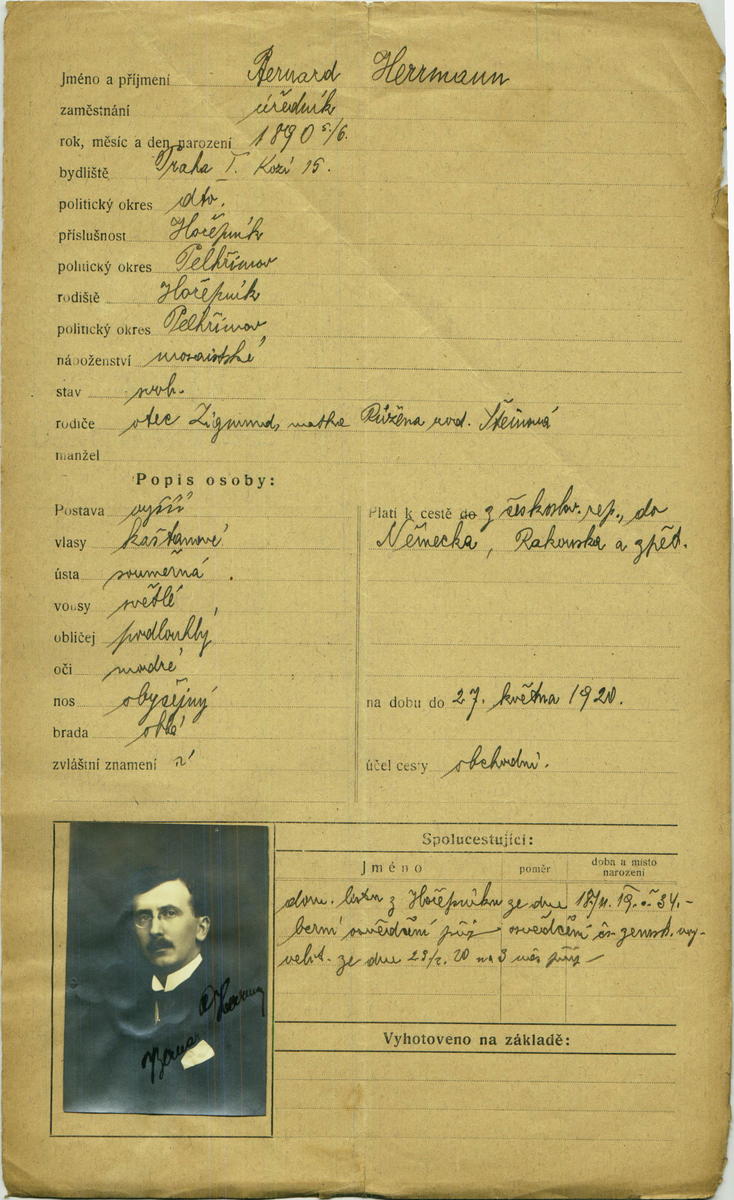 Jméno a příjmení Bernard Herrmann
zaměstnání úředník
rok, měsíc a den narození 1890 5/6.
bydliště Praha I. Kozí 15.
politický okres dto.
příslušnost Hořepník
politický okres Pelhřimov
rodiště Hořepník
politický okres Pelhřimov
náboženství mosaistské
stav svob.
rodiče otec Zigmund, matka Růžena rod. Steinová
manžel
Popis osoby:
Postava vyšší
vlasy kaštanové
ústa souměrná.
vousy světlé
obličej podlouhlý
oči modré
nos obyčejný
brada oblá
zvláštní znamení
Platí k cestě do z českoslov. rep., do
Německa, Rakouska a zpět.
na dobu do 27. května 1920.
účel cesty obchodní.
Spolucestující:
Jméno poměr doba a místo narození
dom. listu z Hořepníku ze dne 18/11. 19. 34.-
berní osvědčení osvědčení zemsk. voj-
velit. ze dne 23/2. 20 na 3 měs
Vyhotoveno na základě: